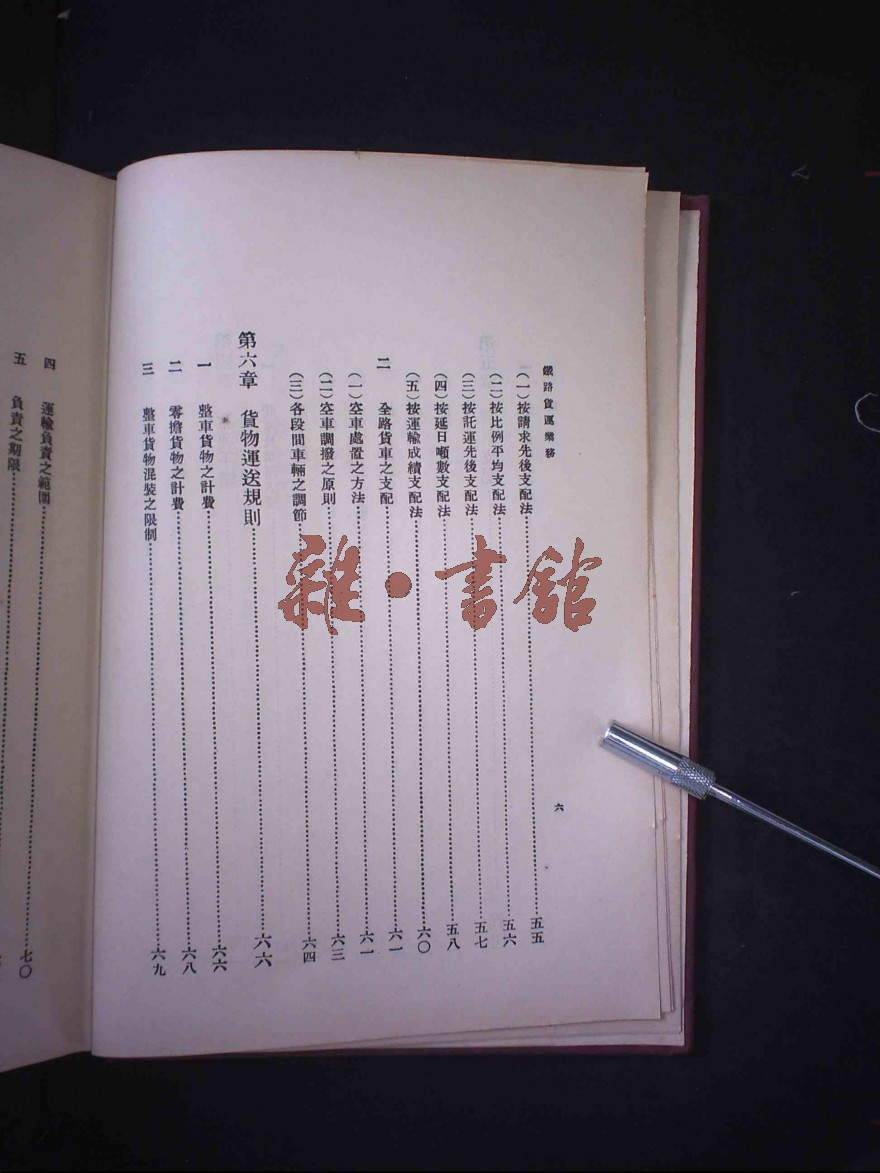 鐵路貨運業務
六
(一)按請求先後支配法……五五
(二)按比例平均支配法……五六
(三)按託運先後支配法……五七
(四)按延日噸數支配法……五八
(五)按運輸成績支配法……六〇
二 全路貨車之支配……六一
(一)空車處置之方法……六一
(二)空車調撥之原則……六三
(三)各段間車輛之調節……六四
第六章 貨物運送規則……六六
一 整車貨物之計費……六六
二 零擔貨物之計費……六八
三 整車貨物混裝之限制……六九
四 運輸負責之範圍……七〇
五 負責之期限……
雜·書館